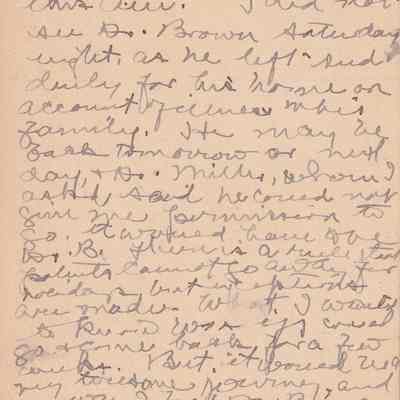 I did not
see Dr. Brown Saturday
night, as he left sud
denly for his home on
account of illness in his
family. He may be
back tomorrow or next
day, & Dr. Mills, whom I
asked, said he could not
give me permission to
go. It would have to be
Dr. B. There is a rule that
patients cannot go away for
holidays but exceptions
are made. What I wanted
to know was if I could
go & come back for a few
weeks. But, it would be a
very tiresome journey, and